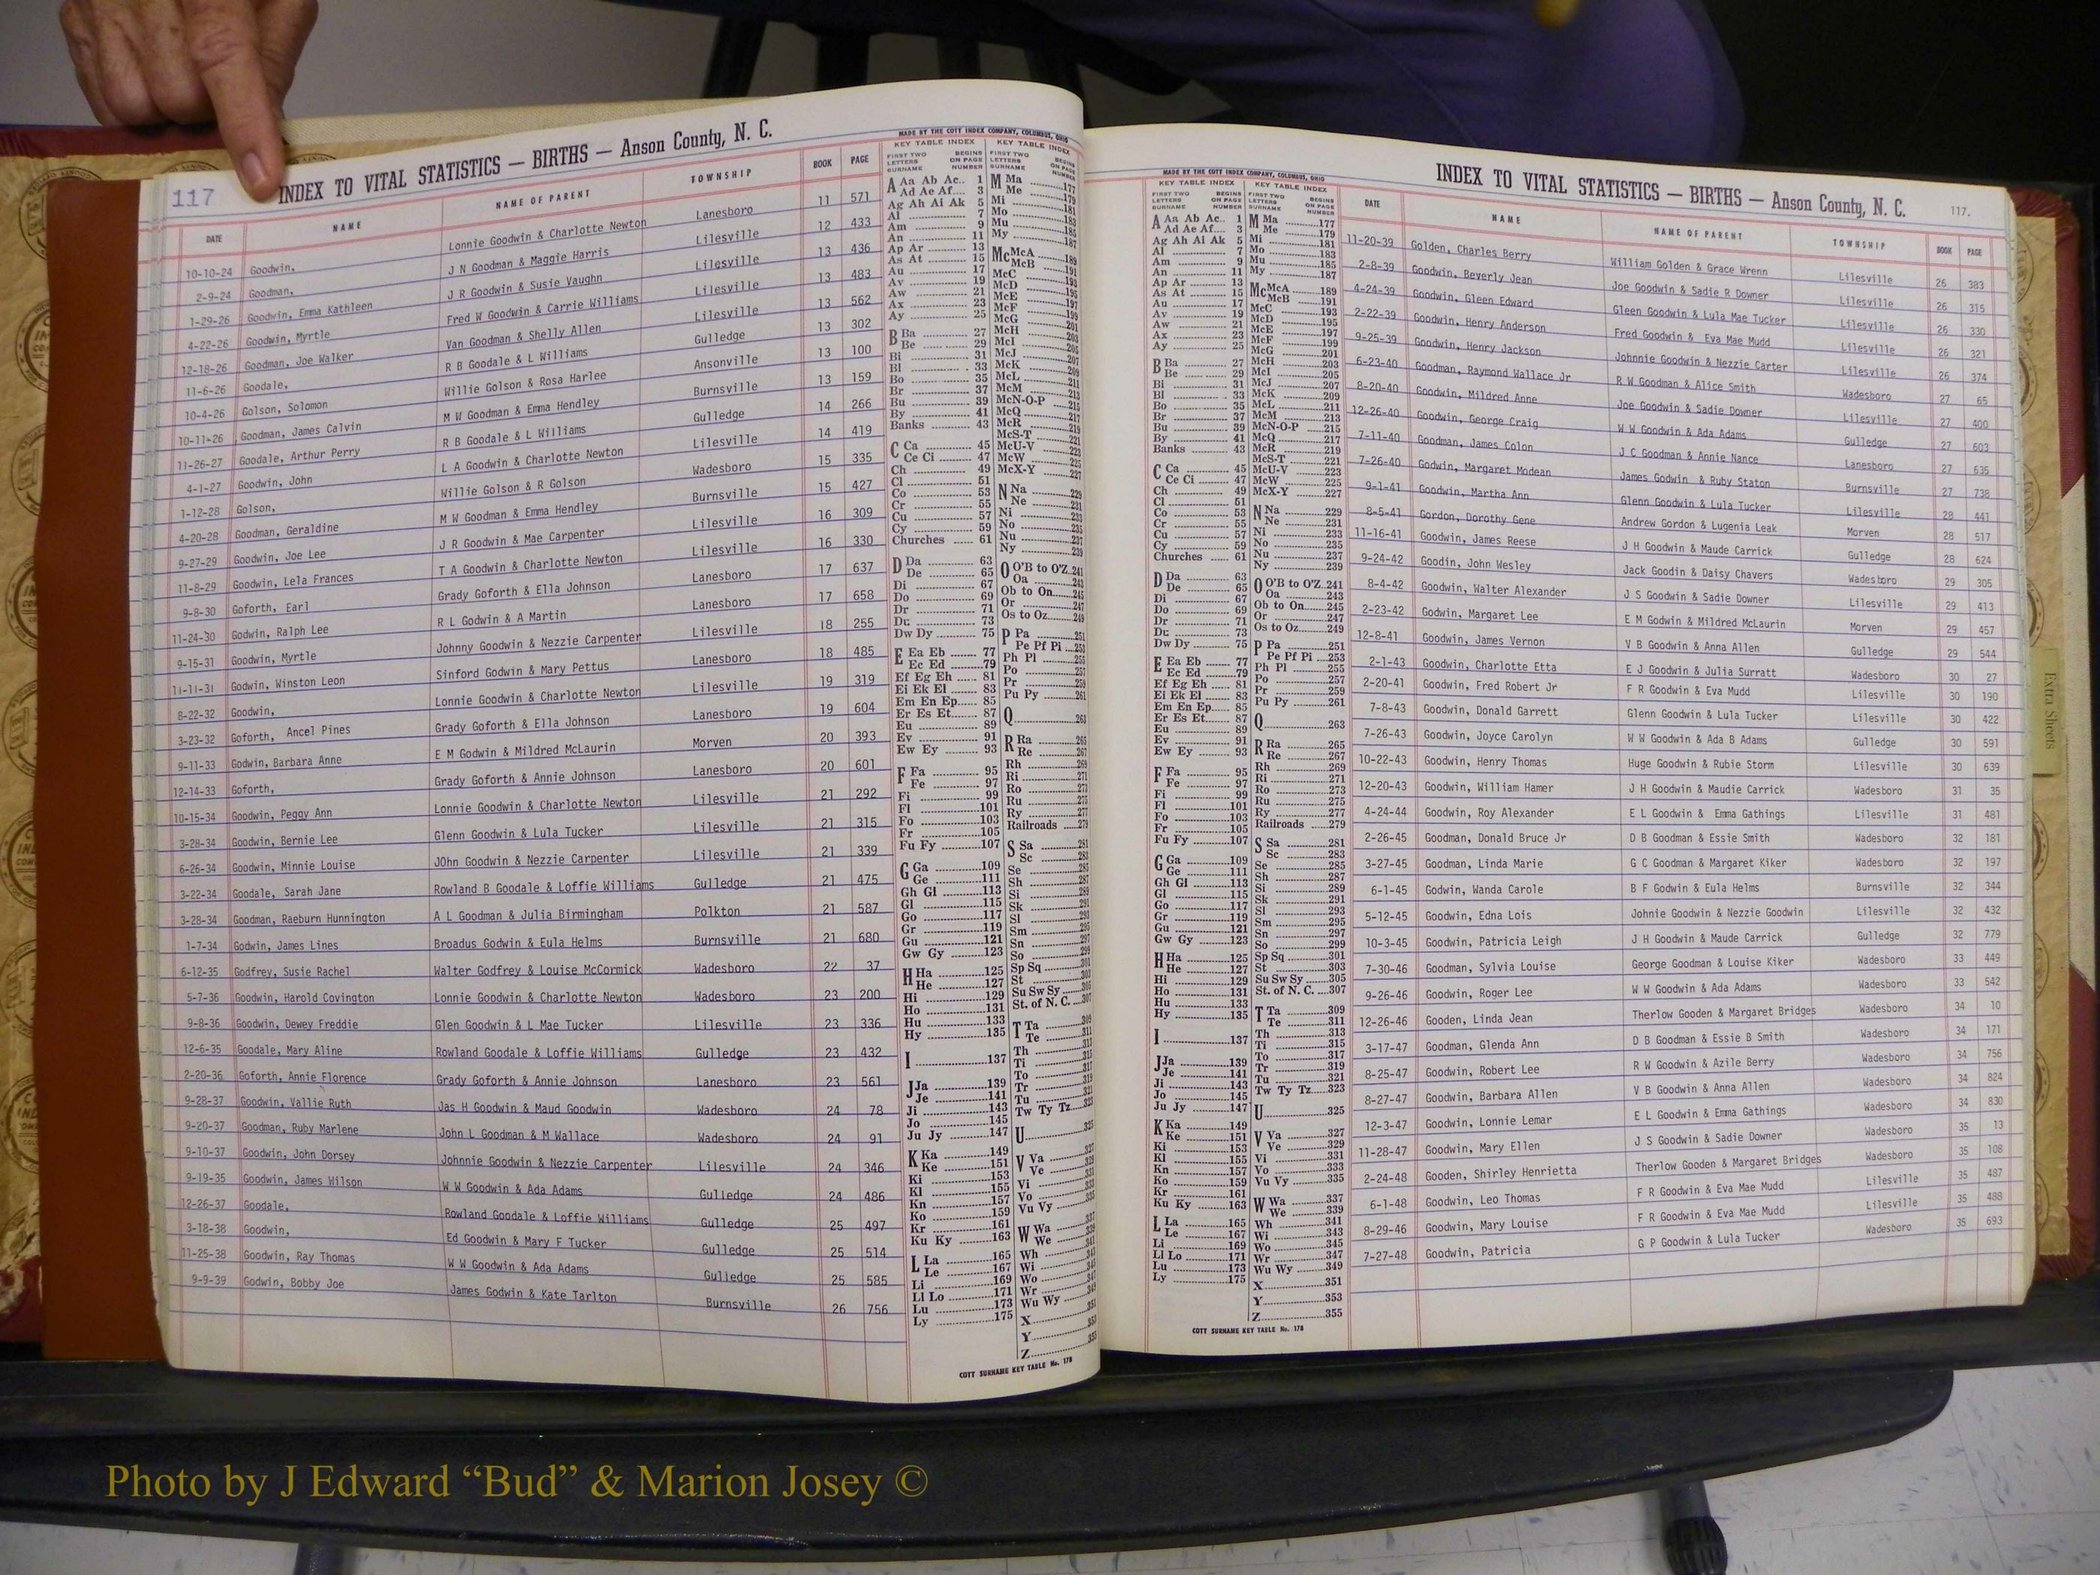 117
INDEX TO VITAL STATISTICS — BIRTHS — Anson County, N. C.
DATE NAME NAME OF PARENT TOWNSHIP BOOK PAGE
10-10-24 Goodwin, Lonnie Goodwin & Charlotte Newton Lanesboro 11 571
2-9-24 Goodman, J N Goodman & Maggie Harris Lilesville 12 433
1-29-26 Goodwin, Emma Kathleen J R Goodwin & Susie Vaughn Lilesville 13 436
4-22-26 Goodwin, Myrtle Fred W Goodwin & Carrie Williams Lilesville 13 483
12-18-26 Goodman, Joe Walker Van Goodman & Shelly Allen Lilesville 13 562
11-6-26 Goodale, R B Goodale & L Williams Gulledge 13 302
10-4-26 Golson, Solomon Willie Golson & Rosa Harlee Ansonville 13 100
10-11-26 Goodman, James Calvin M W Goodman & Emma Hendley Burnsville 13 159
11-26-27 Goodale, Arthur Perry R B Goodale & L Williams Gulledge 14 266
4-1-27 Goodwin, John L A Goodwin & Charlotte Newton Lilesville 14 419
1-12-28 Golson, Willie Golson & R Golson Wadesboro 15 335
4-20-28 Goodman, Geraldine M W Goodman & Emma Hendley Burnsville 15 427
9-27-29 Goodwin, Joe Lee J R Goodwin & Mae Carpenter Lilesville 16 309
11-8-29 Goodwin, Lela Frances T A Goodwin & Charlotte Newton Lilesville 16 330
9-8-30 Goforth, Earl Grady Goforth & Ella Johnson Lanesboro 17 637
11-24-30 Godwin, Ralph Lee R L Godwin & A Martin Lanesboro 17 658
9-15-31 Goodwin, Myrtle Johnny Goodwin & Nezzie Carpenter Lilesville 18 255
11-11-31 Godwin, Winston Leon Sinford Godwin & Mary Pettus Lanesboro 18 485
8-22-32 Goodwin, Lonnie Goodwin & Charlotte Newton Lilesville 19 319
3-23-32 Goforth, Ancel Pines Grady Goforth & Ella Johnson Lanesboro 19 604
9-11-33 Godwin, Barbara Anne E M Godwin & Mildred McLaurin Morven 20 393
12-14-33 Goforth, Grady Goforth & Annie Johnson Lanesboro 20 601
10-15-34 Goodwin, Peggy Ann Lonnie Goodwin & Charlotte Newton Lilesville 21 292
3-28-34 Goodwin, Bernie Lee Glenn Goodwin & Lula Tucker Lilesville 21 315
6-26-34 Goodwin, Minnie Louise JOhn Goodwin & Nezzie Carpenter Lilesville 21 339
3-22-34 Goodale, Sarah Jane Rowland B Goodale & Loffie Williams Gulledge 21 475
3-28-34 Goodman, Raeburn Hunnington A L Goodman & Julia Birmingham Polkton 21 587
1-7-34 Godwin, James Lines Broadus Godwin & Eula Helms Burnsville 21 680
6-12-35 Godfrey, Susie Rachel Walter Godfrey & Louise McCormick Wadesboro 22 37
5-7-36 Goodwin, Harold Covington Lonnie Goodwin & Charlotte Newton Wadesboro 23 200
9-8-36 Goodwin, Dewey Freddie Glen Goodwin & L Mae Tucker Lilesville 23 336
12-6-35 Goodale, Mary Aline Rowland Goodale & Loffie Williams Gulledge 23 432
2-20-36 Goforth, Annie Florence Grady Goforth & Annie Johnson Lanesboro 23 561
9-28-37 Goodwin, Vallie Ruth Jas H Goodwin & Maud Goodwin Wadesboro 24 78
9-20-37 Goodman, Ruby Marlene John L Goodman & M Wallace Wadesboro 24 91
9-10-37 Goodwin, John Dorsey Johnnie Goodwin & Nezzie Carpenter Lilesville 24 346
9-19-35 Goodwin, James Wilson W W Goodwin & Ada Adams Gulledge 24 486
12-26-37 Goodale, Rowland Goodale & Loffie Williams Gulledge 25 497
3-18-38 Goodwin, Ed Goodwin & Mary F Tucker Gulledge 25 514
11-25-38 Goodwin, Ray Thomas W W Goodwin & Ada Adams Gulledge 25 585
9-9-39 Godwin, Bobby Joe James Godwin & Kate Tarlton Burnsville 26 756
MADE BY THE COTT INDEX COMPANY, COLUMBUS, OHIO
KEY TABLE INDEX KEY TABLE INDEX
FIRST TWO LETTERS SURNAME BEGINS ON PAGE NUMBER FIRST TWO LETTERS SURNAME BEGINS ON PAGE NUMBER
A Aa Ab Ac.. 1
Ad Ae Af.... 3
Ag Ah Ai Ak 5
Al 7
Am 9
An 11
Ap Ar 13
As At 15
Au 17
Av 19
Aw 21
Ax 23
Ay 25
B Ba 27
Be 29
Bi 31
Bl 33
Bo 35
Br 37
Bu 39
By 41
Banks 43
C Ca 45
Ce Ci 47
Ch 49
Cl 51
Co 53
Cr 55
Cu 57
Cy 59
Churches 61
D Da 63
De 65
Di 67
Do 69
Dr 71
Du 73
Dw Dy 75
E Ea Eb 77
Ec Ed 79
Ef Eg Eh 81
Ei Ek El 83
Em En Ep 85
Er Es Et 87
Eu 89
Ev 91
Ew Ey 93
F Fa 95
Fe 97
Fi 99
Fl 101
Fo 103
Fr 105
Fu Fy 107
G Ga 109
Ge 111
Gh Gi 113
Gl 115
Go 117
Gr 119
Gu 121
Gw Gy 123
H Ha 125
He 127
Hi 129
Ho 131
Hu 133
Hy 135
I 137
J Ja 139
Je 141
Ji 143
Jo 145
Ju Jy 147
K Ka 149
Ke 151
Ki 153
Kl 155
Kn 157
Ko 159
Kr 161
Ku Ky 163
L La 165
Le 167
Li 169
Ll Lo 171
Lu 173
Ly 175
M Ma 177
Me 179
Mi 181
Mo 183
Mu 185
My 187
Mc McA 189
McB 191
McC 193
McD 195
McE 197
McF 199
McG 201
McH 203
McI 205
McJ 207
McK 209
McL 211
McM 213
McN-O-P 215
McQ 217
McR 219
McS-T 221
McU-V 223
McW 225
McX-Y 227
N Na 229
Ne 231
Ni 233
No 235
Nu 237
Ny 239
O O'B to O'Z 241
Oa 243
Ob to On 245
Or 247
Os to Oz 249
P Pa 251
Pe Pf Pi 253
Ph Pl 255
Po 257
Pr 259
Pu Py 261
Q 263
R Ra 265
Re 267
Rh 269
Ri 271
Ro 273
Ru 275
Ry 277
Railroads 279
S Sa 281
Sc 283
Se 285
Sh 287
Si 289
Sk 291
Sl 293
Sm 295
Sn 297
So 299
Sp Sq 301
St 303
Su Sw Sy 305
St. of N. C. 307
T Ta 309
Te 311
Th 313
Ti 315
To 317
Tr 319
Tu 321
Tw Ty Tz 323
U 325
V Va 327
Ve 329
Vi 331
Vo 333
Vu Vy 335
W Wa 337
We 339
Wh 341
Wi 343
Wo 345
Wr 347
Wu Wy 349
X 351
Y 353
Z 355
COTT SURNAME KEY TABLE No. 178
MADE BY THE COTT INDEX COMPANY, COLUMBUS, OHIO
KEY TABLE INDEX KEY TABLE INDEX
FIRST TWO LETTERS SURNAME BEGINS ON PAGE NUMBER FIRST TWO LETTERS SURNAME BEGINS ON PAGE NUMBER
A Aa Ab Ac.. 1
Ad Ae Af.... 3
Ag Ah Ai Ak 5
Al 7
Am 9
An 11
Ap Ar 13
As At 15
Au 17
Av 19
Aw 21
Ax 23
Ay 25
B Ba 27
Be 29
Bi 31
Bl 33
Bo 35
Br 37
Bu 39
By 41
Banks 43
C Ca 45
Ce Ci 47
Ch 49
Cl 51
Co 53
Cr 55
Cu 57
Cy 59
Churches 61
D Da 63
De 65
Di 67
Do 69
Dr 71
Du 73
Dw Dy 75
E Ea Eb 77
Ec Ed 79
Ef Eg Eh 81
Ei Ek El 83
Em En Ep 85
Er Es Et 87
Eu 89
Ev 91
Ew Ey 93
F Fa 95
Fe 97
Fi 99
Fl 101
Fo 103
Fr 105
Fu Fy 107
G Ga 109
Ge 111
Gh Gi 113
Gl 115
Go 117
Gr 119
Gu 121
Gw Gy 123
H Ha 125
He 127
Hi 129
Ho 131
Hu 133
Hy 135
I 137
J Ja 139
Je 141
Ji 143
Jo 145
Ju Jy 147
K Ka 149
Ke 151
Ki 153
Kl 155
Kn 157
Ko 159
Kr 161
Ku Ky 163
L La 165
Le 167
Li 169
Ll Lo 171
Lu 173
Ly 175
M Ma 177
Me 179
Mi 181
Mo 183
Mu 185
My 187
Mc McA 189
McB 191
McC 193
McD 195
McE 197
McF 199
McG 201
McH 203
McI 205
McJ 207
McK 209
McL 211
McM 213
McN-O-P 215
McQ 217
McR 219
McS-T 221
McU-V 223
McW 225
McX-Y 227
N Na 229
Ne 231
Ni 233
No 235
Nu 237
Ny 239
O O'B to O'Z 241
Oa 243
Ob to On 245
Or 247
Os to Oz 249
P Pa 251
Pe Pf Pi 253
Ph Pl 255
Po 257
Pr 259
Pu Py 261
Q 263
R Ra 265
Re 267
Rh 269
Ri 271
Ro 273
Ru 275
Ry 277
Railroads 279
S Sa 281
Sc 283
Se 285
Sh 287
Si 289
Sk 291
Sl 293
Sm 295
Sn 297
So 299
Sp Sq 301
St 303
Su Sw Sy 305
St. of N. C. 307
T Ta 309
Te 311
Th 313
Ti 315
To 317
Tr 319
Tu 321
Tw Ty Tz 323
U 325
V Va 327
Ve 329
Vi 331
Vo 333
Vu Vy 335
W Wa 337
We 339
Wh 341
Wi 343
Wo 345
Wr 347
Wu Wy 349
X 351
Y 353
Z 355
COTT SURNAME KEY TABLE No. 178
INDEX TO VITAL STATISTICS — BIRTHS — Anson County, N. C. 117.
DATE NAME NAME OF PARENT TOWNSHIP BOOK PAGE
11-20-39 Golden, Charles Berry William Golden & Grace Wrenn Lilesville 26 383
2-8-39 Goodwin, Beverly Jean Joe Goodwin & Sadie R Downer Lilesville 26 315
4-24-39 Goodwin, Gleen Edward Gleen Goodwin & Lula Mae Tucker Lilesville 26 330
2-22-39 Goodwin, Henry Anderson Fred Goodwin & Eva Mae Mudd Lilesville 26 321
9-25-39 Goodwin, Henry Jackson Johnnie Goodwin & Nezzie Carter Lilesville 26 374
6-23-40 Goodman, Raymond Wallace Jr R W Goodman & Alice Smith Wadesboro 27 65
8-20-40 Goodwin, Mildred Anne Joe Goodwin & Sadie Downer Lilesville 27 400
12-26-40 Goodwin, George Craig W W Goodwin & Ada Adams Gulledge 27 603
7-11-40 Goodman, James Colon J C Goodman & Annie Nance Lanesboro 27 635
7-26-40 Godwin, Margaret Modean James Godwin & Ruby Staton Burnsville 27 738
9-1-41 Goodwin, Martha Ann Glenn Goodwin & Lula Tucker Lilesville 28 441
8-5-41 Gordon, Dorothy Gene Andrew Gordon & Lugenia Leak Morven 28 517
11-16-41 Goodwin, James Reese J H Goodwin & Maude Carrick Gulledge 28 624
9-24-42 Goodin, John Wesley Jack Goodin & Daisy Chavers Wadesboro 29 305
8-4-42 Goodwin, Walter Alexander J S Goodwin & Sadie Downer Lilesville 29 413
2-23-42 Godwin, Margaret Lee E M Godwin & Mildred McLaurin Morven 29 457
12-8-41 Goodwin, James Vernon V B Goodwin & Anna Allen Gulledge 29 544
2-1-43 Goodwin, Charlotte Etta E J Goodwin & Julia Surratt Wadesboro 30 27
2-20-41 Goodwin, Fred Robert Jr F R Goodwin & Eva Mudd Lilesville 30 190
7-8-43 Goodwin, Donald Garrett Glenn Goodwin & Lula Tucker Lilesville 30 422
7-26-43 Goodwin, Joyce Carolyn W W Goodwin & Ada B Adams Gulledge 30 591
10-22-43 Goodwin, Henry Thomas Huge Goodwin & Rubie Storm Lilesville 30 639
12-20-43 Goodwin, William Hamer J H Goodwin & Maudie Carrick Wadesboro 31 35
4-24-44 Goodwin, Roy Alexander E L Goodwin & Emma Gathings Lilesville 31 481
2-26-45 Goodman, Donald Bruce Jr D B Goodman & Essie Smith Wadesboro 32 181
3-27-45 Goodman, Linda Marie G C Goodman & Margaret Kiker Wadesboro 32 197
6-1-45 Godwin, Wanda Carole B F Godwin & Eula Helms Burnsville 32 344
5-12-45 Goodwin, Edna Lois Johnie Goodwin & Nezzie Goodwin Lilesville 32 432
10-3-45 Goodwin, Patricia Leigh J H Goodwin & Maude Carrick Gulledge 32 779
7-30-46 Goodman, Sylvia Louise George Goodman & Louise Kiker Wadesboro 33 449
9-26-46 Goodwin, Roger Lee W W Goodwin & Ada Adams Wadesboro 33 542
12-26-46 Gooden, Linda Jean Therlow Gooden & Margaret Bridges Wadesboro 34 10
3-17-47 Goodman, Glenda Ann D B Goodman & Essie B Smith Wadesboro 34 171
8-25-47 Goodwin, Robert Lee R W Goodwin & Azile Berry Wadesboro 34 756
8-27-47 Goodwin, Barbara Allen V B Goodwin & Anna Allen Wadesboro 34 824
12-3-47 Goodwin, Lonnie Lemar E L Goodwin & Emma Gathings Wadesboro 34 830
11-28-47 Goodwin, Mary Ellen J S Goodwin & Sadie Downer Wadesboro 35 13
2-24-48 Gooden, Shirley Henrietta Therlow Gooden & Margaret Bridges Wadesboro 35 108
6-1-48 Goodwin, Leo Thomas F R Goodwin & Eva Mae Mudd Lilesville 35 487
8-29-46 Goodwin, Mary Louise F R Goodwin & Eva Mae Mudd Lilesville 35 488
7-27-48 Goodwin, Patricia G P Goodwin & Lula Tucker Wadesboro 35 693
Extra Sheets
Photo by J Edward “Bud” & Marion Josey ©